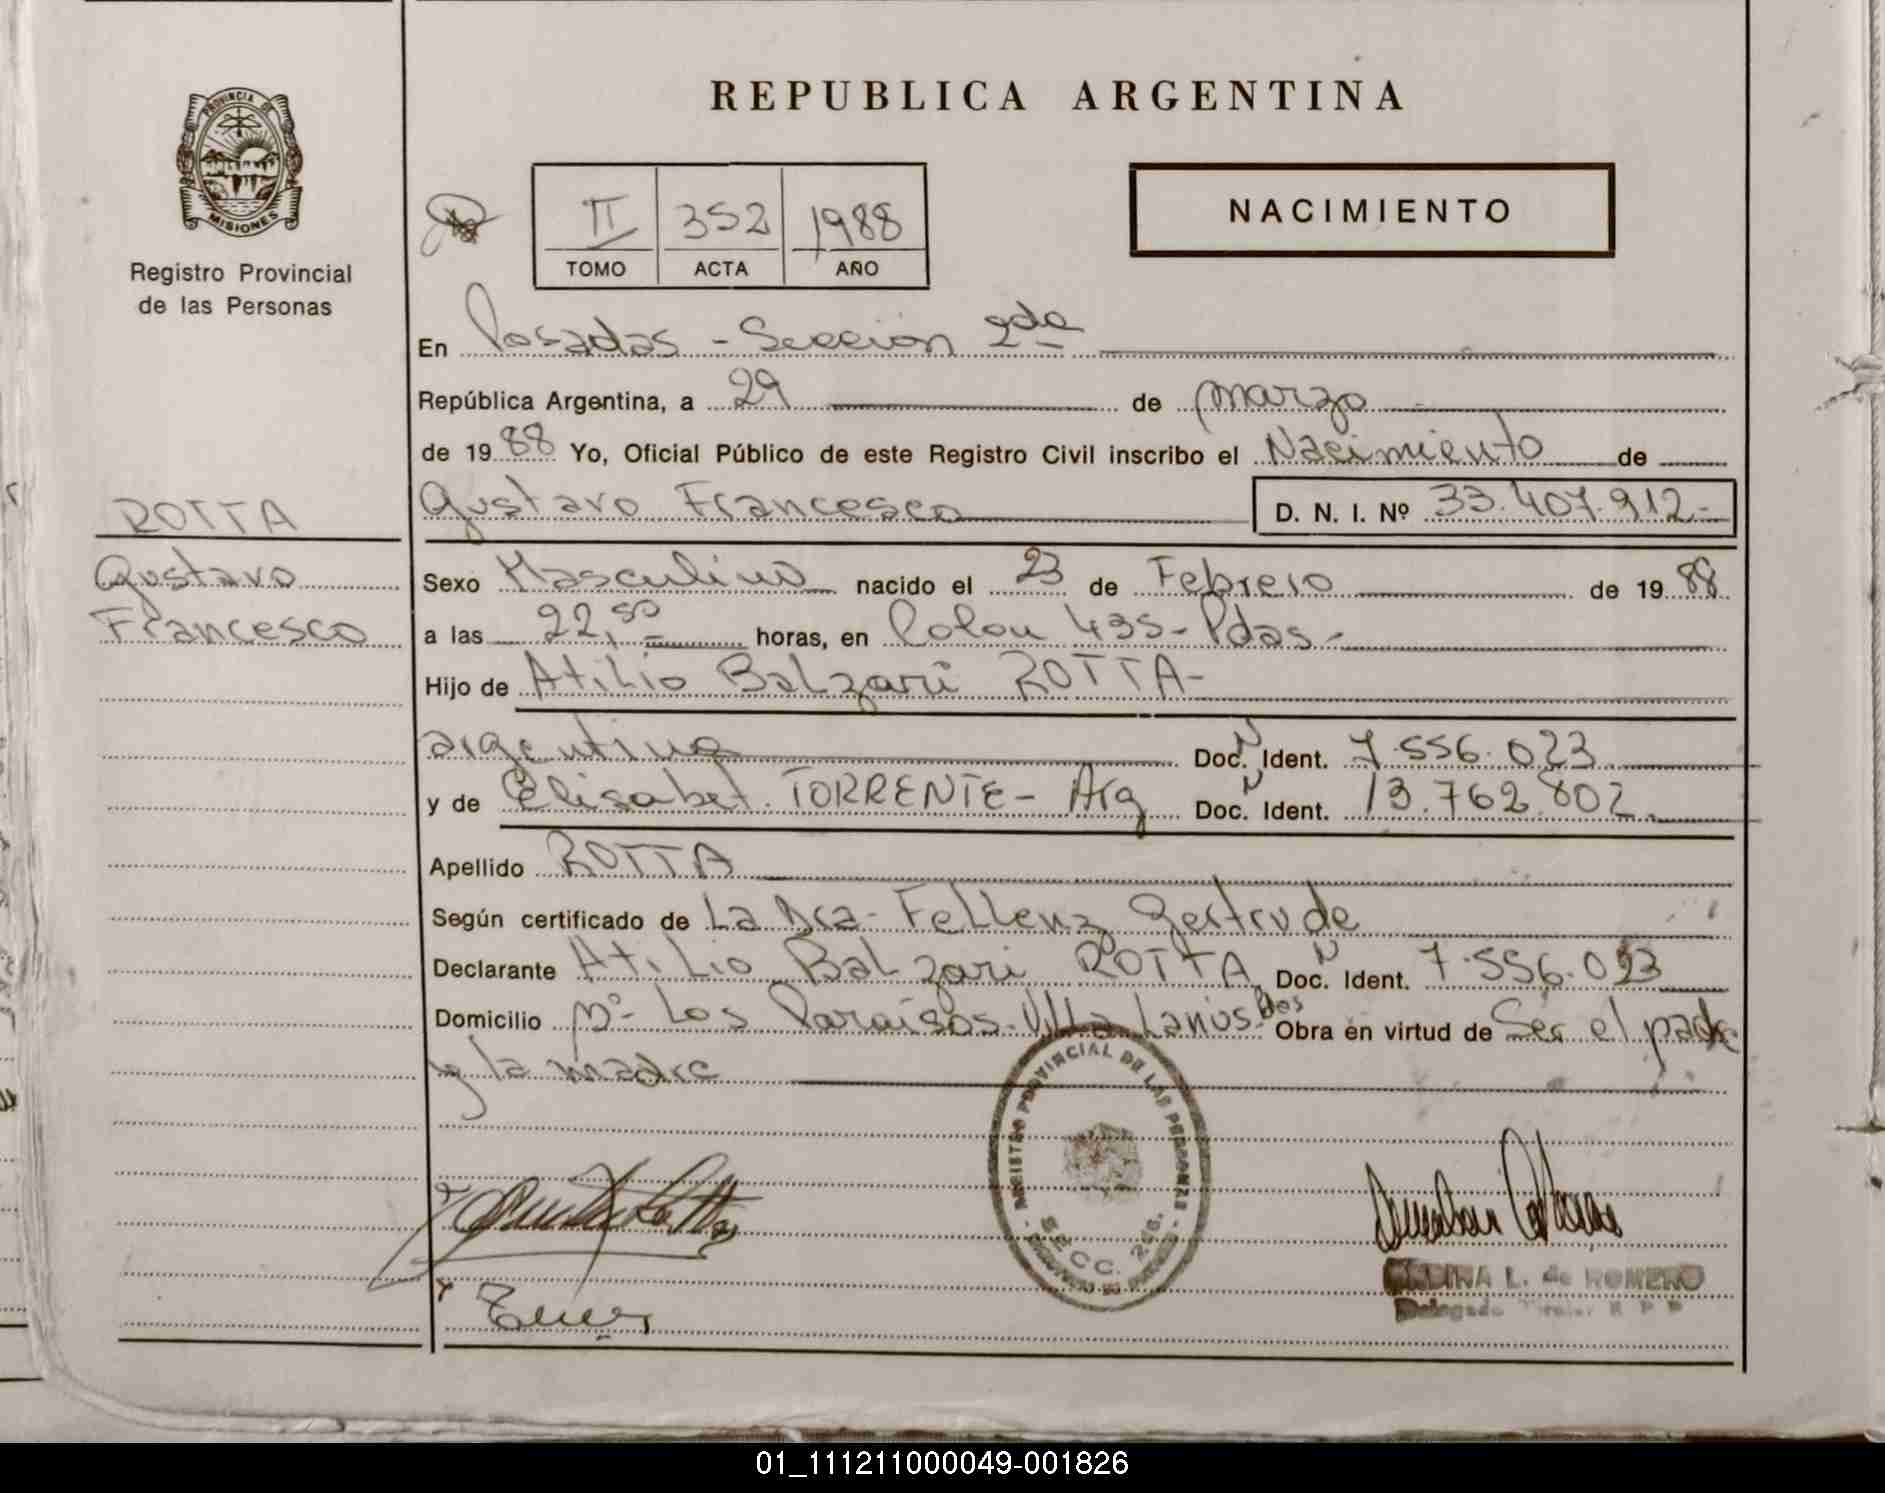 PROVINCIA DE
MISIONES
Registro Provincial
de las Personas
REPUBLICA ARGENTINA
II 352 1988
TOMO ACTA AÑO
NACIMIENTO
En Posadas - Sección 2da
República Argentina, a 29 de marzo
de 1988 Yo, Oficial Público de este Registro Civil inscribo el Nacimiento de
ROTTA
Gustavo Francesco D. N. I. Nº 33.407.912-
Gustavo
Francesco
Sexo Masculino nacido el 23 de Febrero de 1988
a las 22,50 horas, en Colon 435- Pdas-
Hijo de Atilio Balzari ROTTA-
argentino Doc. N Ident. 7.556.023
y de Elisabet TORRENTE- Arg Doc. N Ident. 13.762.802
Apellido ROTTA
Según certificado de La Dra- Fellenz Gertrude
Declarante Atilio Balzari ROTTA Doc. N Ident. 7.556.023
Domicilio Los Paraisos- Villa Lanús- Pdas Obra en virtud de Ser el padre
y la madre
REGISTRO PROVINCIAL DE LAS PERSONAS
SECC.
L. de ROMERO
Delegado Titular R P P
01_111211000049-001826